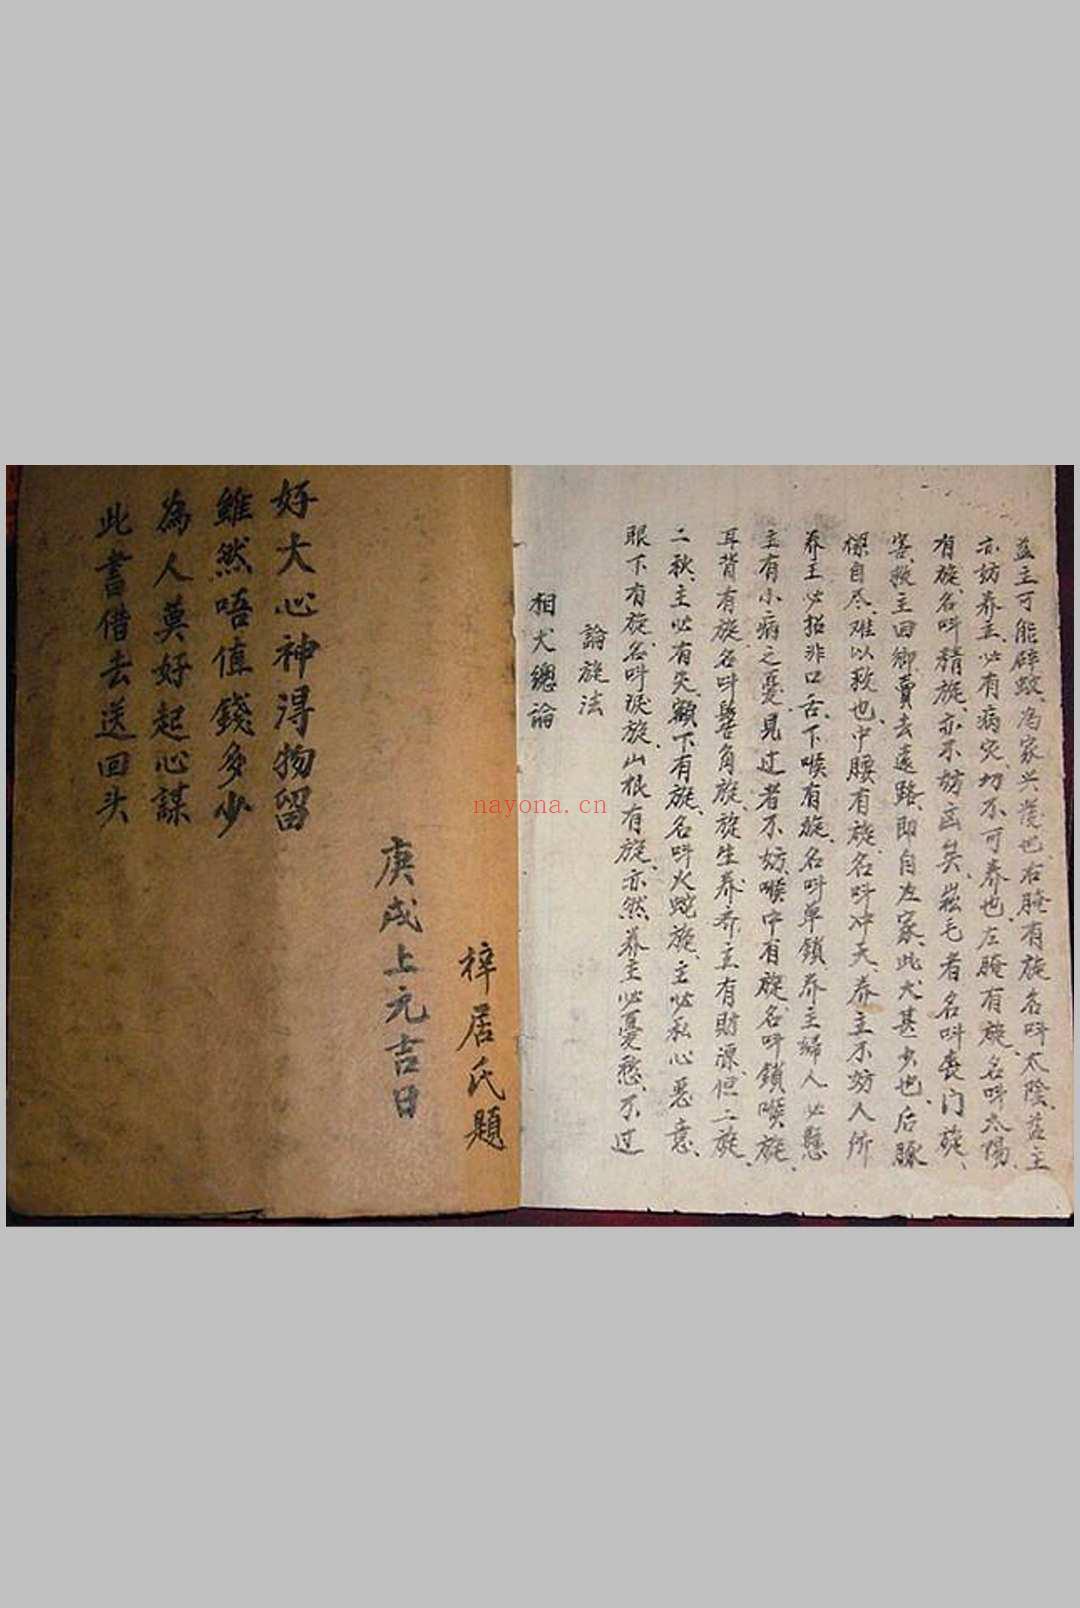 此書借去送回头
為人莫好起心謀
雖然唔值錢多少
好大心神得物留
庚戌上元吉日
梓居氏題
相犬總論
論旋法
眼下有旋名叫淚旋、山根有旋、亦然养主必憂愁、不过
二秋、主必有灾、額下有旋、名叫火蛇旋、主必私心恶意、
耳背有旋、名叫髻角旋、旋生养养主有財源、但二旋、
主有小病之憂、見过者不妨、喉中有旋、名叫鎖喉旋、
养主必招非口舌、下喉有旋、名叫单鎖养主婦人必懸
樑自尽、难以救也、中腰有旋、名叫冲天、养主不妨人所
害、救主回鄉、賣去遠路、即自返家、此犬甚少也、后豚
有旋、名叫精旋、亦不妨凶矣、崧毛者名叫喪门旋、
亦妨养主、必有病灾切不可养也、左腌有旋、名叫太陽、
益主可能辟蚊、為家兴發也、右腌有旋名叫太陰、益主
nayona.cn